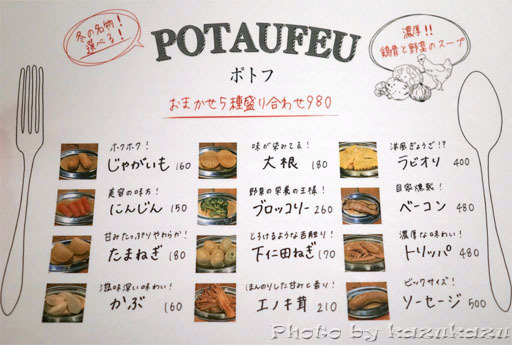 冬の名物!
選べる!
POTAUFEU
ポトフ
濃厚!!
鶏骨と野菜のスープ
おまかせ5種盛り合わせ980
ホクホク!
じゃがいも 160
味が染みてる!
大根 180
洋風ぎょうざ!?
ラビオリ 400
美容の味方!
にんじん 150
野菜の栄養の王様!
ブロッコリー 260
自家燻製!
ベーコン 480
甘みたっぷりやわらか!
たまねぎ 180
とろけるような舌触り!
下仁田ねぎ 170
濃厚な味わい!
トリッパ 480
滋味深い味わい!
かぶ 160
ほんのりした甘みと香り!
エノキ茸 210
ビックサイズ!
ソーセージ 500
Photo by kazukazu